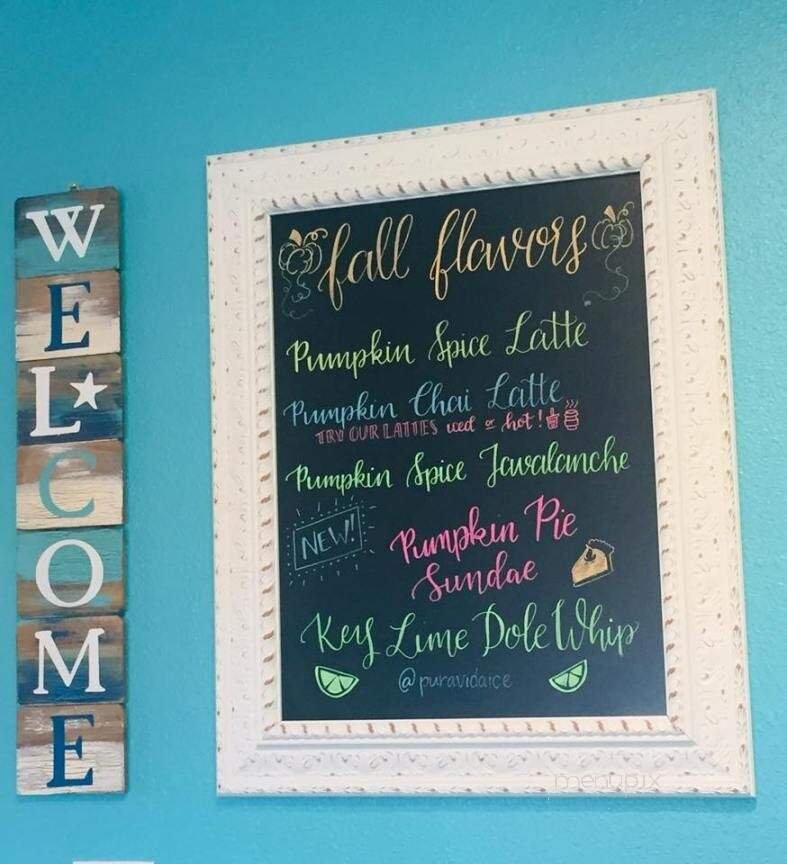 WELCOME
fall flavors
Pumpkin Spice Latte
Pumpkin Chai Latte
TRY OUR LATTES iced or hot!
Pumpkin Spice Javalanche
NEW!
Pumpkin Pie
Sundae
Key Lime Dole Whip
@puravidaice
menupix